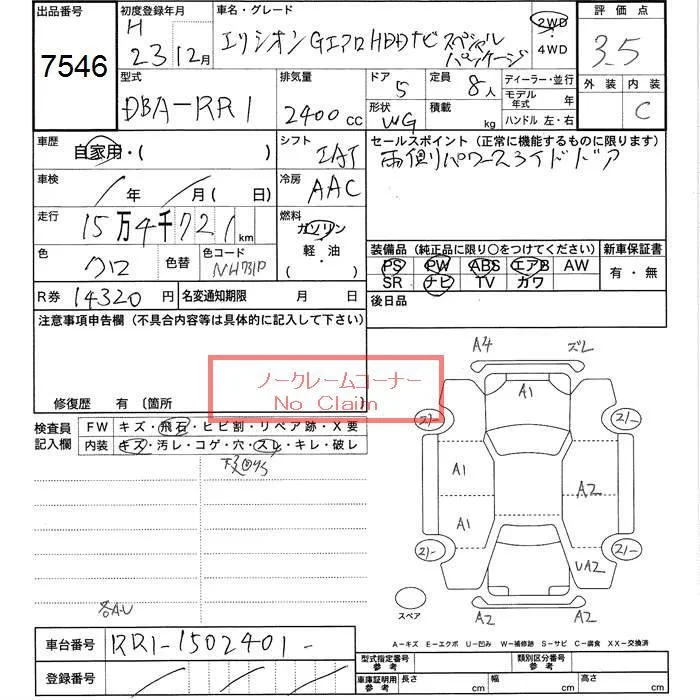 出品番号 初度登録年月 車名・グレード 評価点
7546 H 23 12月 エリシオン Gエアロ HDDナビ スペシャルパッケージ 2WD・4WD 3.5
型式 排気量 ドア 定員 ディーラー・並行 外装 内装
DBA-RR1 2400cc 5 8人 モデル年式 年 C
形状 WG 積載 kg ハンドル 左・右
車歴 自家用・( ) シフト IAT セールスポイント(正常に機能するものに限ります)
両側パワースライドドア
車検 年 月(日) 冷房 AAC
走行 15万4千721km 燃料 ガソリン・軽・油 ( )
色 クロ 色替 色コード NH731P
装備品(純正品に限り○をつけてください) 新車保証書
PS PW ABS エアB AW 有・無
SR ナビ TV カワ
R券 14320円 名変通知期限 月 日 後日品
注意事項申告欄(不具合内容等は具体的に記入して下さい)
ノークレームコーナー
No Claim
修復歴 有 〔箇所
検査員記入欄 FW キズ・飛石・ヒビ割・リペア跡・X要
内装 キズ・汚レ・コゲ・穴・スレ・キレ・破レ
A4 ズレ
A1
21- 21-
A1 A2
A1
21- 21-
UA2
スペア A2 A2
各AU
A-キズ E-エクボ U-凹み W-補修跡 S-サビ C-腐食 XX-交換済
車台番号 RR1-1502401-
登録番号
型式指定番号参考 類別区分番号参考
車庫証明用参考 長さ cm 幅 cm 高さ cm